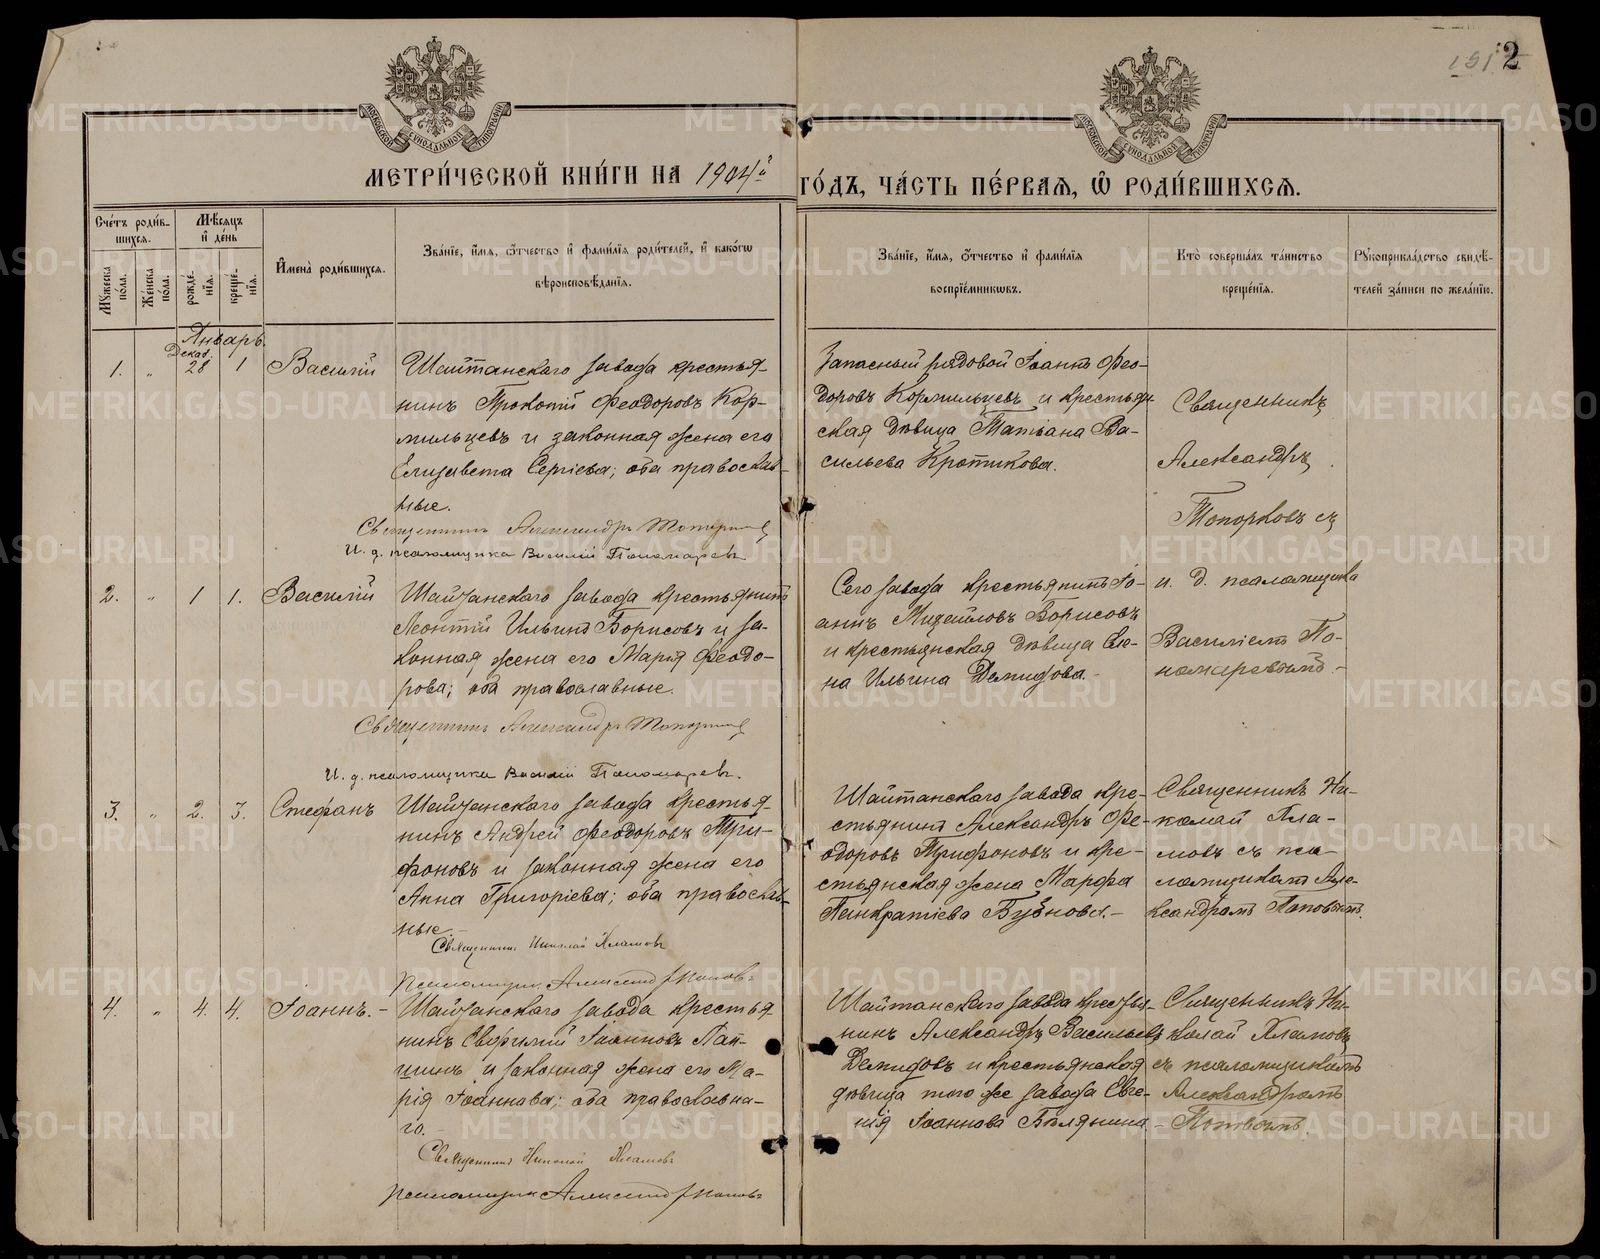 151 2
МОСКОВСКОЙ СѴНОДАЛЬНОЙ ТИПОГРАФІИ
МОСКОВСКОЙ СѴНОДАЛЬНОЙ ТИПОГРАФІИ
МЕТРИ́ЧЕСКОЙ КНИ́ГИ НА 1904й ГО́ДЪ, ЧА́СТЬ ПЕ́РВАѦ, Ѡ҆ РОДИ́ВШИХСѦ.
Сче́тъ роди́в-
шихсѧ.
Мꙋ́жеска по́ла.
Же́нска по́ла.
Мѣ́сѧцъ и҆ де́нь
рожде́-нїѧ.
креще́-нїѧ.
И҆мена̀ роди́вшихсѧ.
Зва́нїе, и҆́мѧ, ѻ҆́тчество и҆ фами́лїѧ роди́телей, и҆ како́гѡ
вѣроисповѣ́данїѧ.
Зва́нїе, и҆́мѧ, ѻ҆́тчество и҆ фами́лїѧ
воспрїе́мникѡвъ.
Кто̀ соверша́лъ та́инство
креще́нїѧ.
Рꙋкоприкла́дство свидѣ́-
телей за́писи по жела́нїю.
Январь.
Декаб.
1. „ 28 1 Василій
Шайтанскаго завода крестья-
нинъ Прокопій Феодоровъ Кор-
мильцевъ и законная жена его
Елизавета Сергіева; оба православ-
ные.
Священникъ Александръ Топорковъ
И. д. псаломщика Василій Пономаревъ
Запасный рядовой Іоаннъ Фео-
доровъ Кормильцевъ и крестьян-
ская дѣвица Татіана Ва-
сильева Кротикова.
Священникъ
Александръ
Топорковъ съ
и. д. псаломщика
Василіемъ По-
номаревымъ.-
2. „ 1 1. Василій
Шайтанскаго завода крестьянинъ
Леонтій Ильинъ Борисовъ и за-
конная жена его Марія Феодо-
рова; оба православные.
Священникъ Александръ Топорковъ
И. д. псаломщика Василій Пономаревъ.
Сего завода крестьянинъ Іо-
аннъ Михайловъ Борисовъ
и крестьянская дѣвица Еле-
на Ильина Демидова.-
3. „ 2. 3. Стефанъ
Шайтанскаго завода крестья-
нинъ Андрей Феодоровъ Три-
фоновъ и законная жена его
Анна Григоріева; оба православ-
ные.-
Священникъ Николай Хламовъ
Псаломщикъ Александръ Поповъ
Шайтанскаго завода кре-
стьянинъ Александръ Фе-
одоровъ Трифоновъ и кре-
стьянская жена Марфа
Панкратіева Бузнова.-
Священникъ Ни-
колай Хла-
мовъ съ пса-
ломщикомъ Але-
ксандромъ Поповымъ.
4. „ 4. 4. Іоаннъ.-
Шайтанскаго завода крестья-
нинъ Евфимій Іоанновъ Пап-
шинъ и законная жена его Ма-
рія Іоаннова; оба православна-
го.-
Священникъ Николай Хламовъ
Псаломщикъ Александръ Поповъ
Шайтанскаго завода крестья-
нинъ Александръ Васильевъ
Демидовъ и крестьянская
дѣвица того же завода Евге-
нія Іоаннова Бѣлянина-
Священникъ Ни-
колай Хламовъ
съ псаломщикомъ
Александромъ
Поповымъ.
METRIKI.GASO-URAL.RU